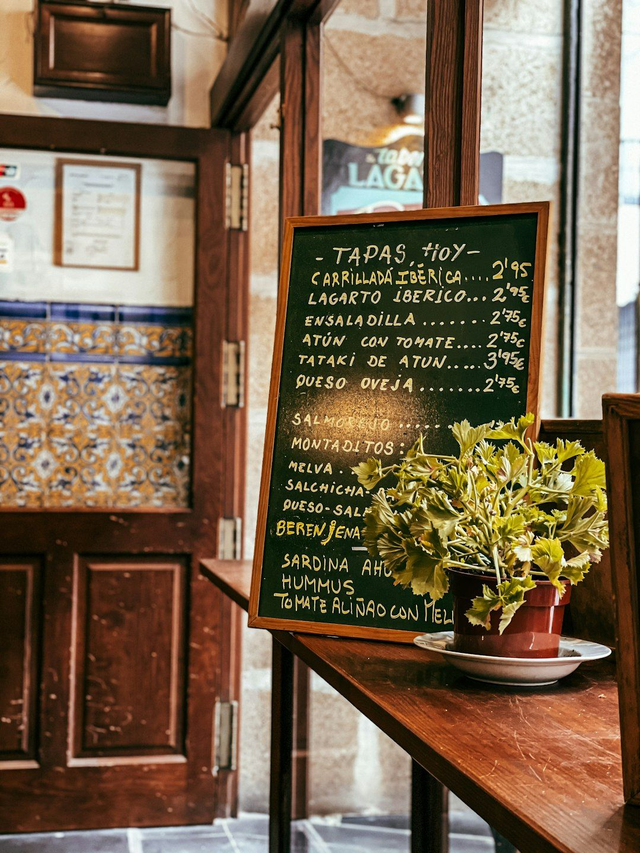 LAGA
- TAPAS, HOY -
CARRILLADA IBÉRICA.... 2'95
LAGARTO IBERICO... 2'95€
ENSALADILLA ....... 2'75€
ATÚN CON TOMATE.... 2'75€
TATAKI DE ATUN..... 3'95€
QUESO OVEJA ....... 2'75€
SALMOREJO .....
MONTADITOS:
MELVA .
SALCHICHA
QUESO-SAL
BERENJENA
SARDINA AHU
HUMMUS
TOMATE ALIÑAO CON MEL